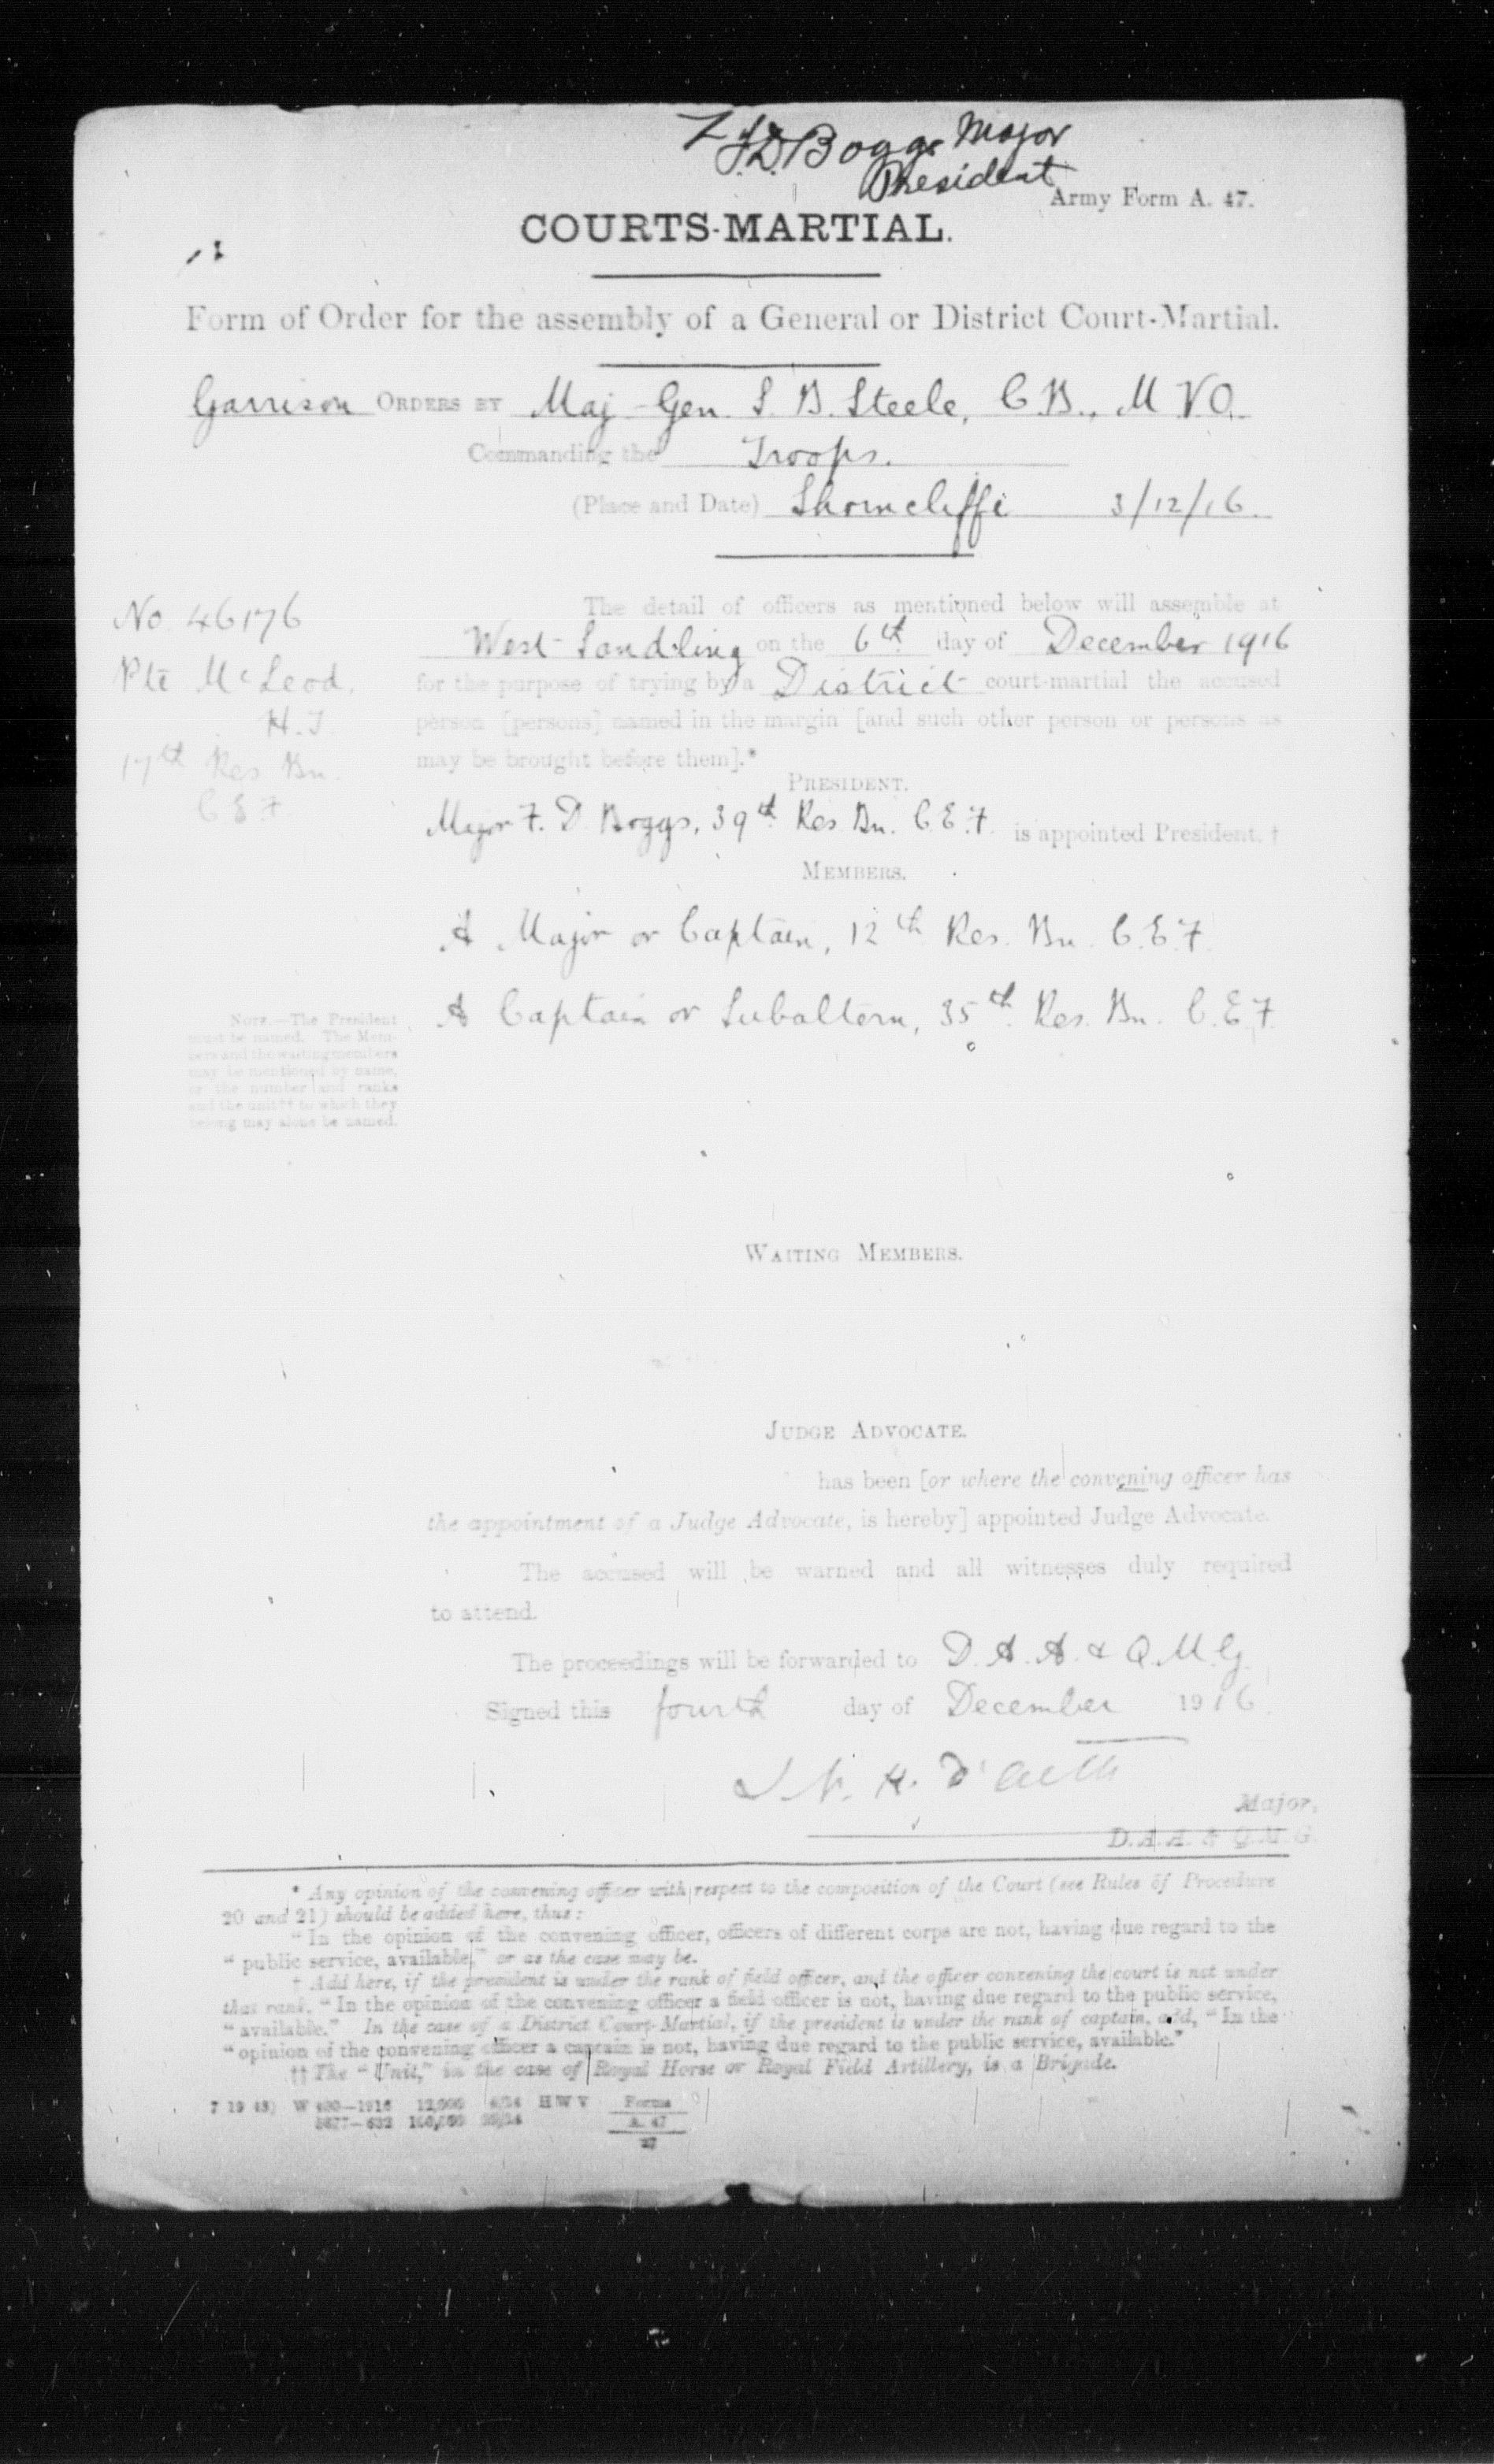 F.D. Boggs Major
President
Army Form A. 47.
COURTS-MARTIAL.
Form of Order for the assembly of a General or District Court-Martial.
Garrison ORDERS BY Maj-Gen. S. B. Steele, C.B., M.V.O.
Commanding the Troops.
(Place and Date) Shorncliffe 3/12/16.
No. 46176
Pte McLeod.
H. J.
17th Res Bn.
C E F
The detail of officers as mentioned below will assemble at
West Sandling on the 6th day of December 1916
for the purpose of trying by a District court-martial the accused
person [persons] named in the margin [and such other person or persons as
may be brought before them].*
PRESIDENT.
Major F. D. Boggs, 39th Res Bn. C.E.F. is appointed President. †
MEMBERS.
A Major or Captain, 12th Res. Bn. C.E.F.
A Captain or Subaltern, 35th Res. Bn. C.E.F.
NOTE.—The President
must be named. The Mem-
bers and the waiting members
may be mentioned by name,
or the number and ranks
and the unit†† to which they
belong may alone be named.
WAITING MEMBERS.
JUDGE ADVOCATE.
has been [or where the convening officer has
the appointment of a Judge Advocate, is hereby] appointed Judge Advocate.
The accused will be warned and all witnesses duly required
to attend.
The proceedings will be forwarded to D.A.A. & Q.M.G.
Signed this fourth day of December 1916.
D'Aeth
Major,
D.A.A. & Q.M.G.
* Any opinion of the convening officer with respect to the composition of the Court (see Rules of Procedure
20 and 21) should be added here, thus:
"In the opinion of the convening officer, officers of different corps are not, having due regard to the
"public service, available," or as the case may be.
† Add here, if the president is under the rank of field officer, and the officer convening the court is not under
that rank, "In the opinion of the convening officer a field officer is not, having due regard to the public service,
"available." In the case of a District Court-Martial, if the president is under the rank of captain, add, "In the
"opinion of the convening officer a captain is not, having due regard to the public service, available."
†† The "Unit," in the case of Royal Horse or Royal Field Artillery, is a Brigade.
7 19 48) W 12,000 H W V Forms
A. 47